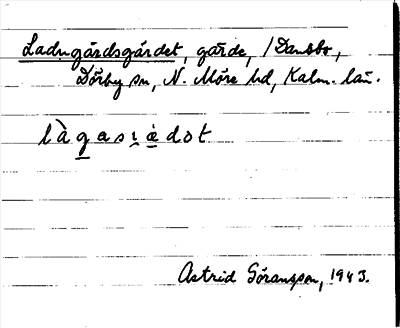 Ladugårdsgårdet, gärde, /Dansbo,
Dörby sn, N. Möre hd, Kalm. län.
làgası̣èdẹt
Astrid Göransson, 1943.